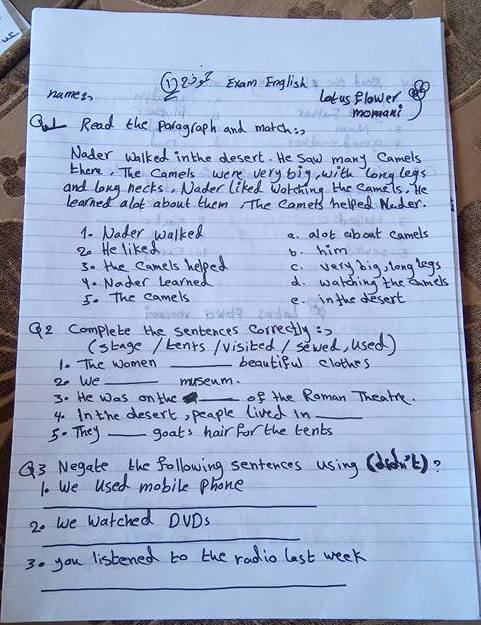 نموذج (1) Exam English
name:,
Lotus flower
momani
Q1 Read the Paragraph and match:,
Nader walked in the desert. He saw many Camels
there. The Camels were very big, with long legs
and long necks. Nader liked watching the Camels. He
learned alot about them. The Camels helped Nader.
1. Nader walked a. alot about camels
2. He liked b. him
3. the camels helped c. very big, long legs
4. Nader Learned d. watching the camels
5. The camels e. in the desert
Q2 Complete the sentences Correctly:,
(stage / tents / visited / sewed, used)
1. The women ______ beautiful clothes
2. We ______ museum.
3. He was on the ______ of the Roman Theatre.
4. In the desert, people lived in ______
5. They ______ goats hair for the tents
Q3 Negate the following sentences using (didn't)?
1. We used mobile phone
2. We watched DVDs
3. you listened to the radio last week